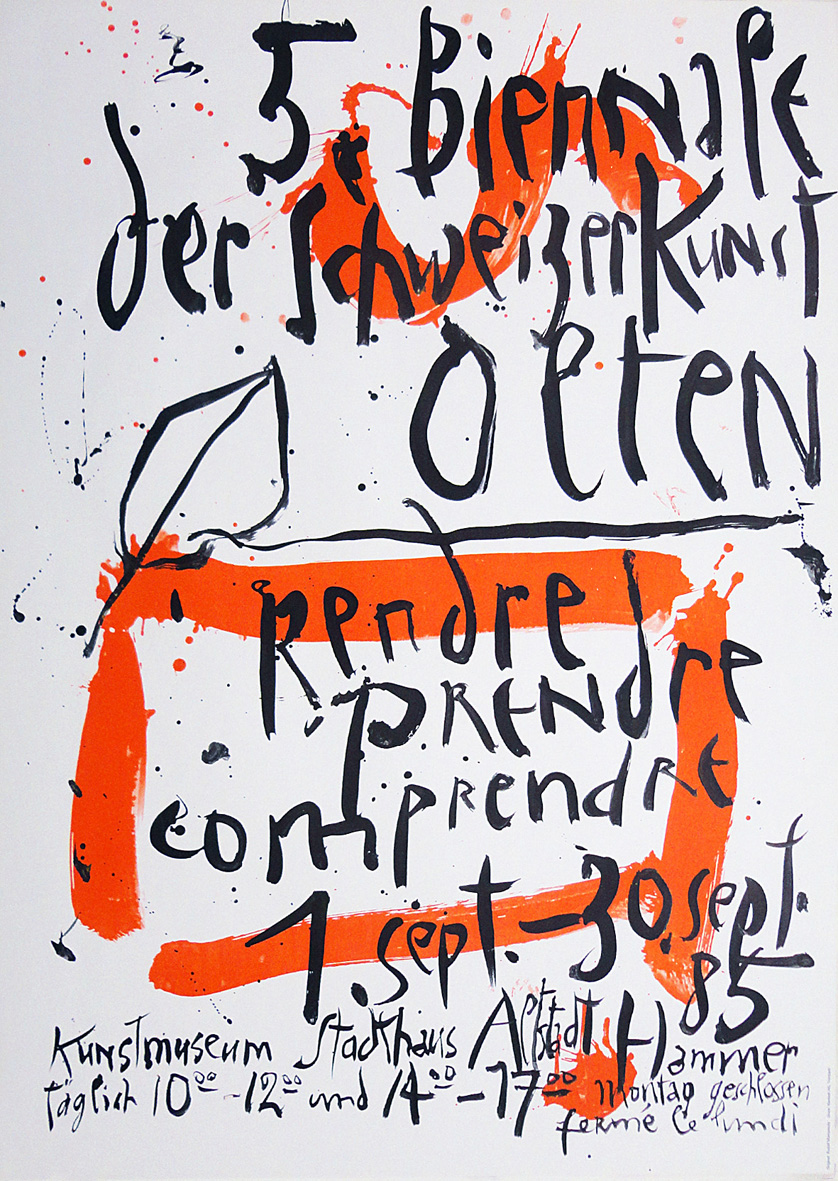 5. Biennale
der Schweizer Kunst
Olten
rendre
prendre
comprendre
1. sept. - 30. sept.
85
Kunstmuseum Stadthaus Altstadt Hammer
täglich 10⁰⁰ - 12⁰⁰ und 14⁰⁰ - 17⁰⁰ montag geschlossen
fermé le lundi